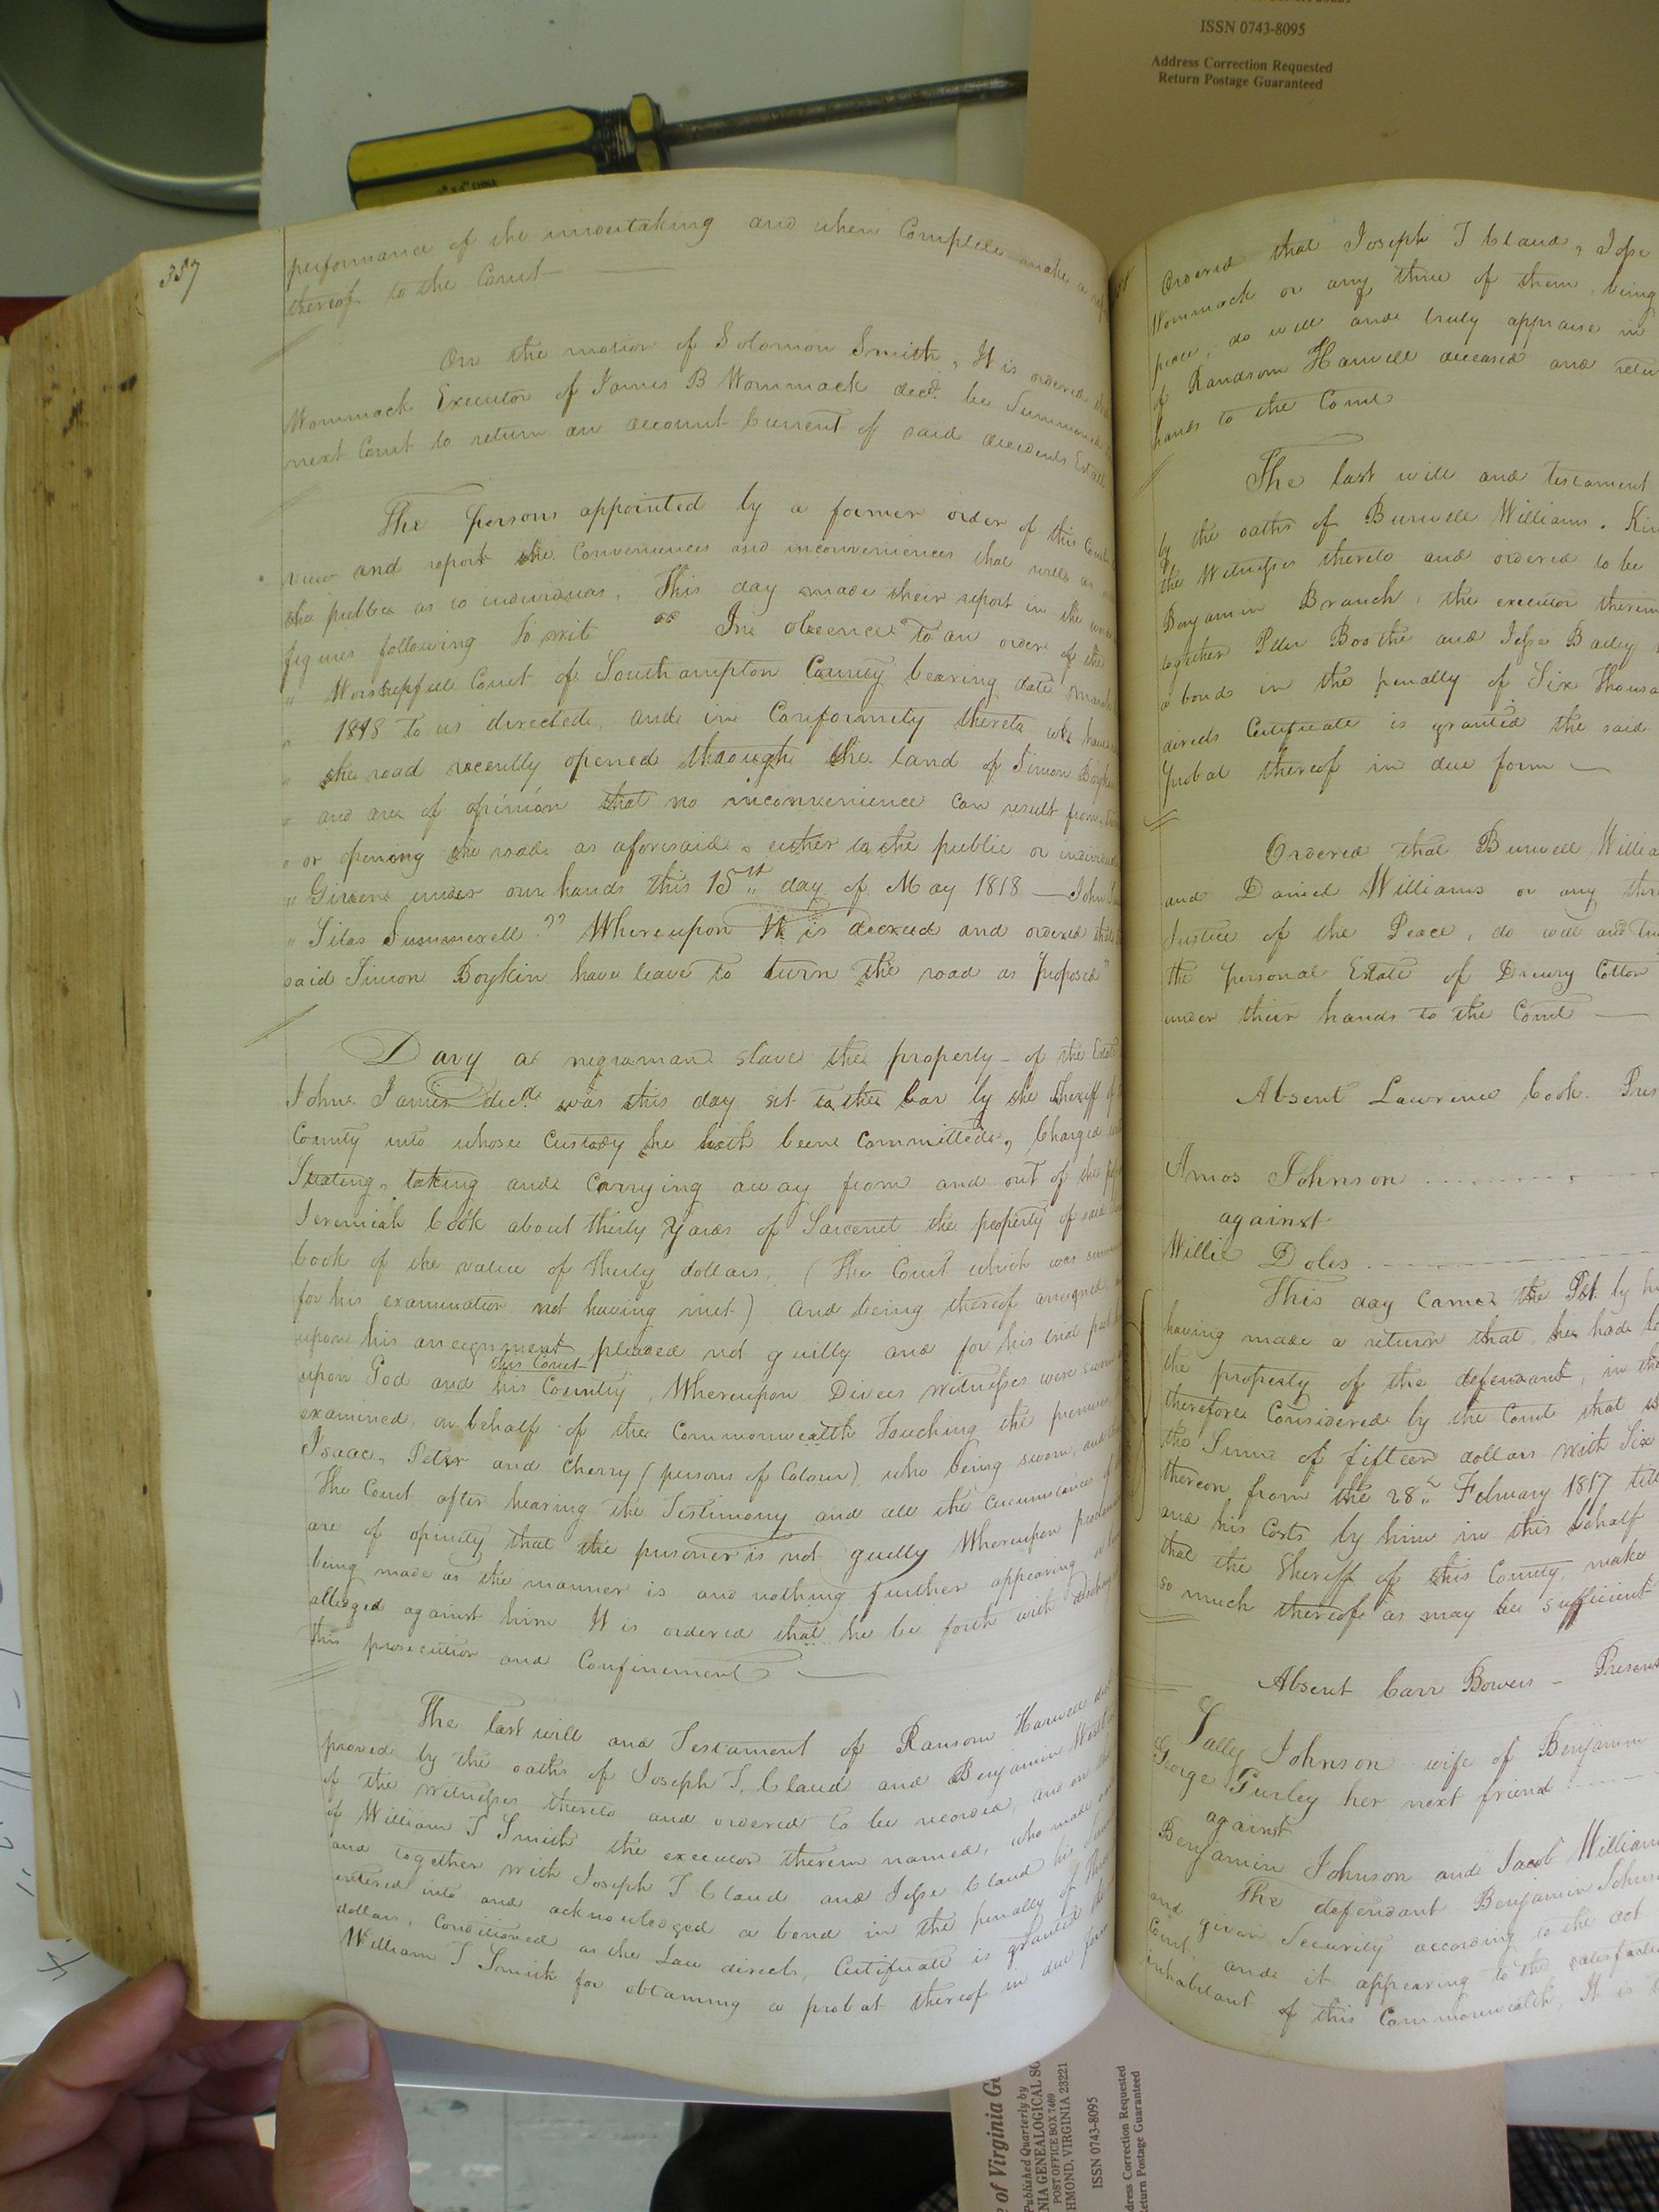 ISSN 0743-8095
Address Correction Requested
Return Postage Guaranteed
CHINA
357
performance of the undertaking and when Complete make a
thereof to the Court
On the motion of Solomon Smith, It is ordered
Wommack Executor of James B Wommack decd. be Summoned
next Court to return an account Current of said decedents Estate
The persons appointed by a former order of this Court
view and report the Conveniences and inconveniences that will
the public as to individuals, This day made their report in the
figures following to wit " In obeence to an order of the
" Worshipfull Court of Southampton County bearing date March
" 1818 to us directed, and in Conformity thereto we have
" the road recently opened through the land of Simon Boykin
" and are of opinion that no inconvenience can result from
" or opening the road as aforesaid, either to the public or
" Given under our hands this 15th day of May 1818 — John
" Silas Summerell " Whereupon It is decreed and ordered that
said Simon Boykin have leave to turn the road as proposed
Davy a negroman slave the property of the Estate
John James decd. was this day set to the bar by the Sheriff of
County into whose Custody he hath been Committed, Charged
Stealing, taking and Carrying away from and out of the
Jeremiah Cook about thirty Yards of Sarcenet the property of said
Cook of the value of thirty dollars, (The Court which was
for his examination not having met) and being thereof arraigned
upon his arraignment pleaded not guilty and for his trial put
this Court
upon God and his Country, Whereupon Divers witnesses were sworn
examined on behalf of the Commonwealth Touching the premises
Isaac, Peter and Cherry (persons of Colour) who being sworn, and
The Court after hearing the Testimony and all the Circumstances
are of opinity that the prisoner is not guilty Whereupon
being made as the manner is and nothing further appearing or
alledged against him It is ordered that he be forth with
this prosecution and Confinement
The last will and Testament of Ransom Harwell
proved by the oaths of Joseph T. Claud and Benjamin
of the witnesses thereto and ordered to be recorded, and on
of William T Smith the executor therein named, who made
and together with Joseph T Claud and Jesse Claud his
entered into and acknowledged a bond in the penalty of
dollars, Conditioned as the Law directs, Certificate is granted the
William T Smith for obtaining a probat thereof in due form
Ordered that Joseph T Claud, Jesse
Wommack or any three of them being
peace, do well and truly appraise in
of Randsom Harwell deceased and
hands to the Court
The last will and testament
by the oaths of Burwell Williams,
the Witnesses thereto and ordered to be
Benjamin Branch, the executor
together Peter Boothe and Jesse Bailey
a bond in the penalty of Six
directs Certificate is granted the said
Probat thereof in due form
Ordered that Burwell
and Daniel Williams or any
Justice of the Peace, do well and
the personal Estate of Drewry Cotton
under their hands to the Court
Absent Lawrence Cook.
Amos Johnson
against
Willie Doles
This day came the Plt. by
having made a return that he had
the property of the defendant, in
therefore Considered by the Court that
the Sum of fifteen dollars with Six
thereon from the 28th February 1817 till
and his Costs by him in this behalf
that the Sheriff of this County, make
so much thereof as may be sufficient
Absent Carr Bowers - Present
Sally Johnson wife of Benjamin
George Gurley her next friend
against
Benjamin Johnson and Jacob
The defendant Benjamin
and given Security according to the act
Court, and it appearing to the
inhabitant of this Commonwealth, It is
of Virginia
Published Quarterly by
GENEALOGICAL
POST OFFICE BOX 7469
VIRGINIA 23221
ISSN 0743-8095
Address Correction Requested
Return Postage Guaranteed